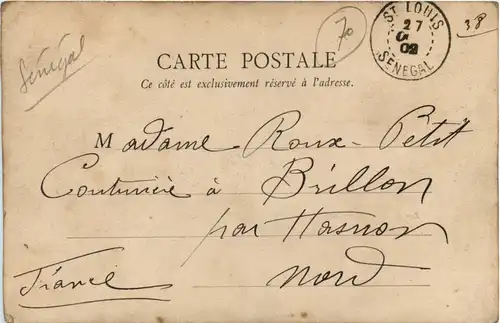 Sénégal
70
ST LOUIS
27
02
SENEGAL
38
CARTE POSTALE
Ce côté est exclusivement réservé à l'adresse.
Madame Roux-Petit
Couturière à Brillon
par Hasnon
Nord
France